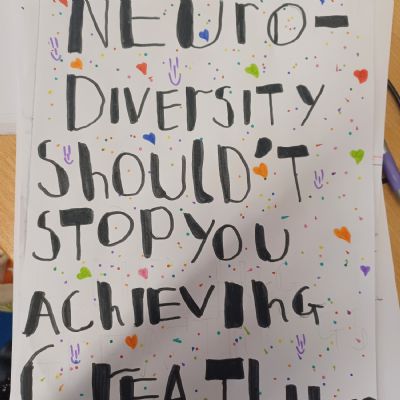 NEUro-
DIVERSITY
ShOULD'T
STOP YOU
AChIEVING
GREAT